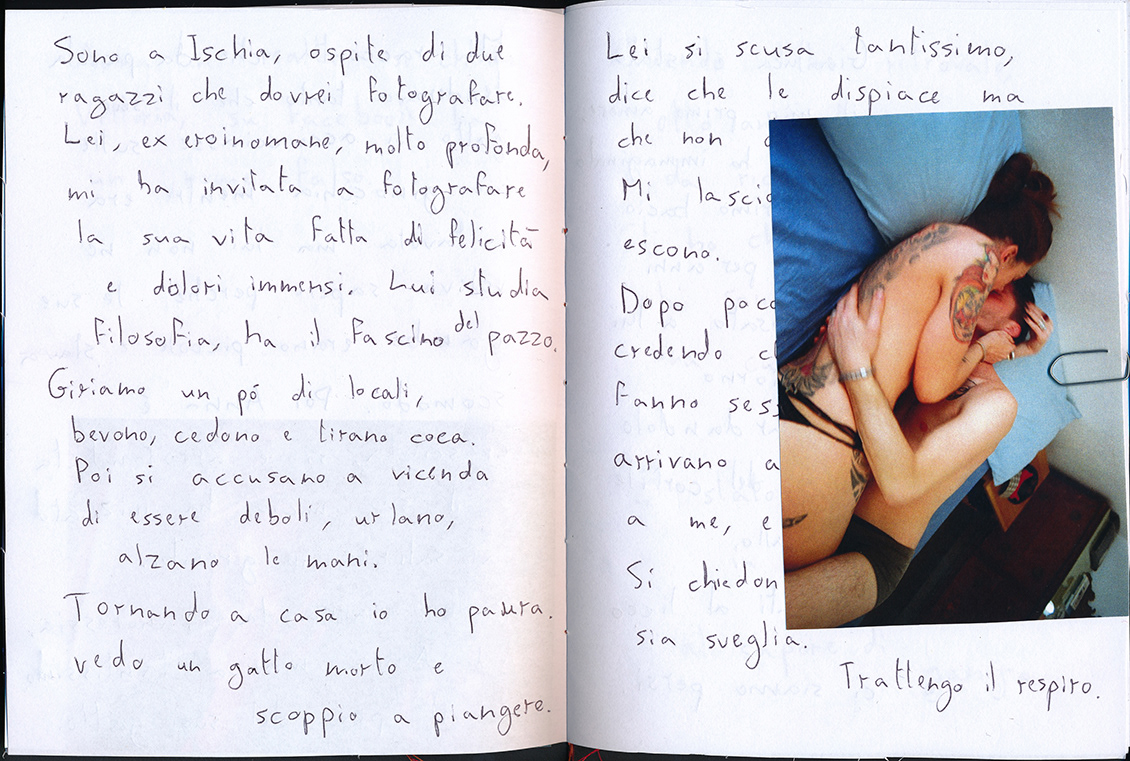 Sono a Ischia, ospite di due
ragazzi che dovrei fotografare.
Lei, ex eroinomane, molto profonda,
mi ha invitata a fotografare
la sua vita fatta di felicità
e dolori immensi. Lui studia
filosofia, ha il fascino del pazzo.
Giriamo un pó di locali,
bevono, cedono e tirano coca.
Poi si accusano a vicenda
di essere deboli, urlano,
alzano le mani.
Tornando a casa io ho paura.
vedo un gatto morto e
scoppio a piangere.
Lei si scusa tantissimo,
dice che le dispiace ma
che non
Mi lascio
escono.
Dopo poco
credendo
fanno sess
arrivano a
a me, e
Si chiedon
sia sveglia.
Trattengo il respiro.